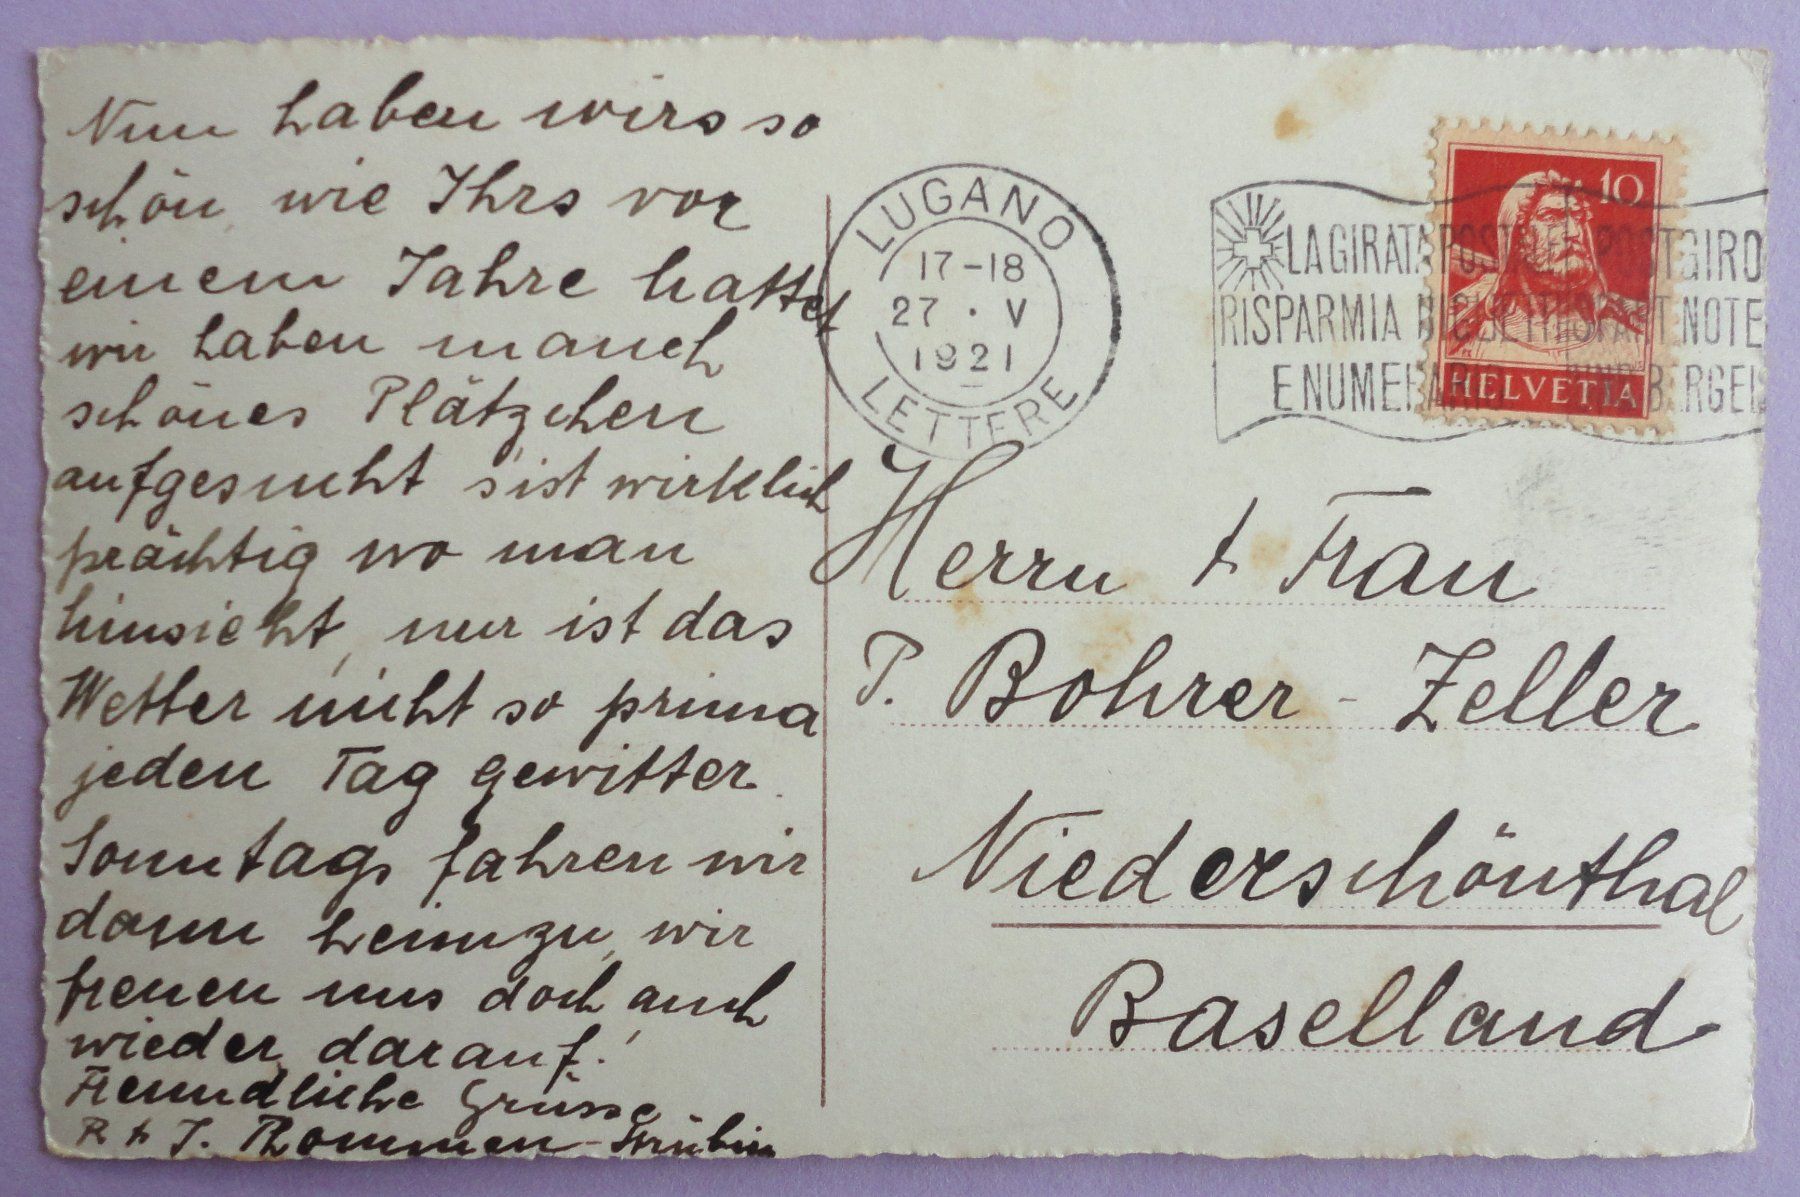 Nun haben wirs so
schön, wie Ihrs vor
einem Jahre hattet
wir haben manch
schönes Plätzchen
aufgesucht s'ist wirklich
prächtig wo man
hinsieht, nur ist das
Wetter nicht so prima
jeden Tag gewitter.
Sonntags fahren wir
dann heimzu, wir
freuen uns doch auch
wieder darauf!
Freundliche Grüsse
R + J. Thommen-Strübin
LUGANO
17-18
27 · V
1921
LETTERE
LA GIRATA POSTALE POSTGIRO
RISPARMIA BIGLIETTI NOTE
E NUMERARIO BARGELD
10
HELVETIA
Herrn + Frau
P. Bohrer-Zeller
Niederschönthal
Baselland